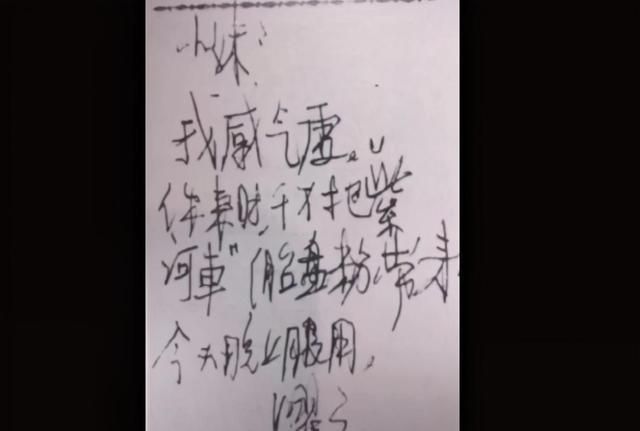 小妹:
我感气虚。
你来时,千万把“紫
河車”(胎盘粉)带来
今天晚上服用。